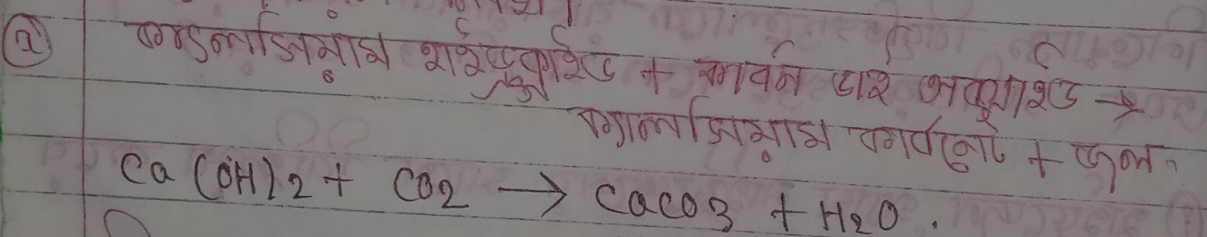 ২ ক্যালসিয়াম হাইড্রক্সাইড + কার্বন ডাই অক্সাইড →
ক্যালসিয়াম কার্বনেট + জল
Ca (OH)2 + CO2 → CaCO3 + H2O.